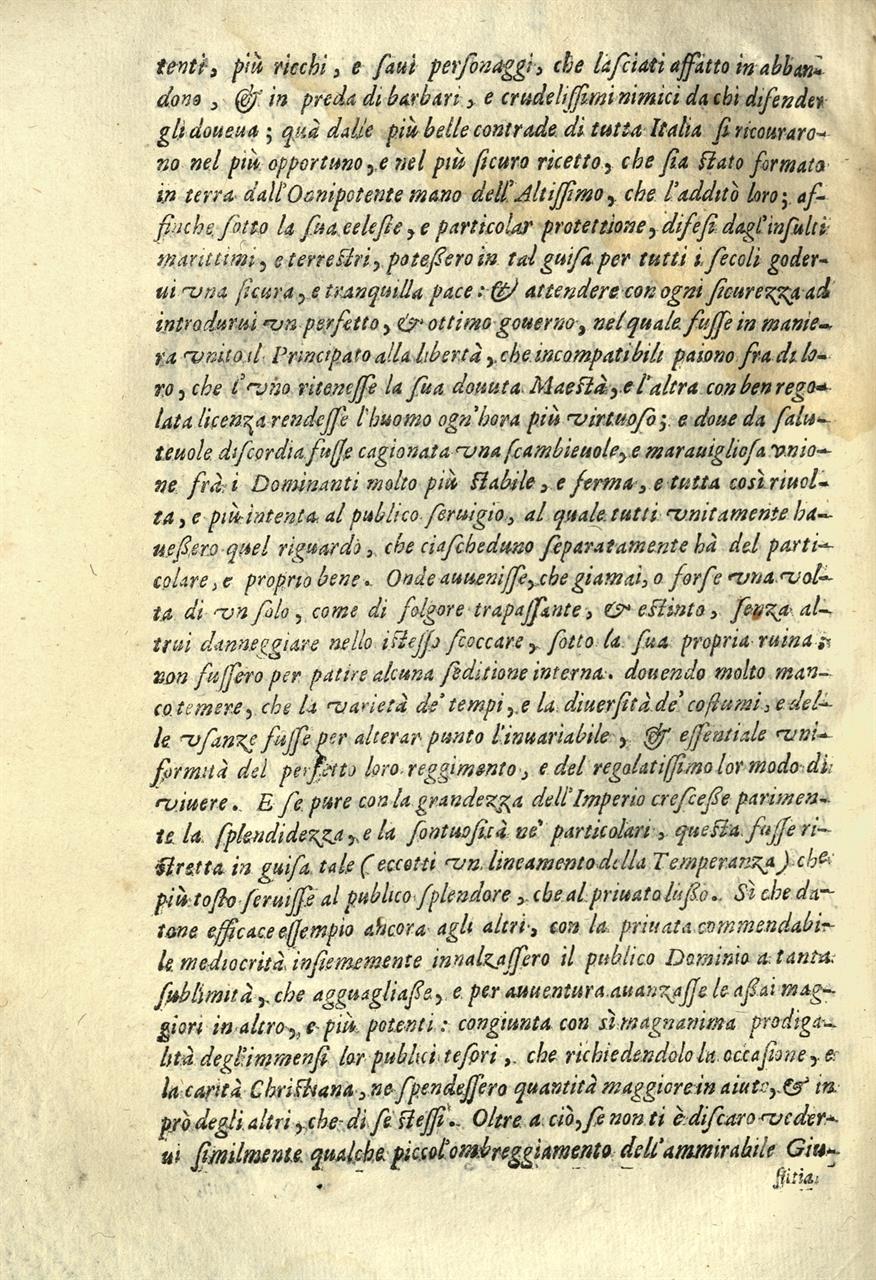 tenti, più ricchi, e saui personaggi, che lasciati affatto in abban-
dono, & in preda di barbari, e crudelissimi nimici da chi difender
gli doueua; quà dalle più belle contrade di tutta Italia si ricouraro-
no nel più opportuno, e nel più sicuro ricetto, che sia stato formato
in terra dall'Onnipotente mano dell'Altissimo, che l'additò loro; af-
finche sotto la sua celeste, e particolar protettione, difesi dagl'insulti
marittimi, e terrestri, poteßero in tal guisa per tutti i secoli goder-
ui vna sicura, e tranquilla pace: & attendere con ogni sicurezza ad
introdurui vn perfetto, & ottimo gouerno, nel quale fusse in manie-
ra vnito il Principato alla libertà, che incompatibili paiono fra di lo-
ro, che l'vno ritenesse la sua douuta Maestà, e l'altra con ben rego-
lata licenza rendesse l'huomo ogn'hora più virtuoso; e doue da salu-
teuole discordia fusse cagionata vna scambieuole, e marauigliosa vnio-
ne frà i Dominanti molto più stabile, e ferma, e tutta così riuol-
ta, e più intenta al publico seruigio, al quale tutti vnitamente ha-
ueßero quel riguardo, che ciascheduno separatamente hà del parti-
colare, e proprio bene. Onde auuenisse, che giamai, o forse vna vol-
ta di vn solo, come di folgore trapassante, & estinto, senza al-
trui danneggiare nello istesso scoccare, sotto la sua propria ruina;
non fussero per patire alcuna seditione interna. douendo molto man-
co temere, che la varietà de' tempi, e la diuersità de' costumi, e del-
le vsanze fusse per alterar punto l'inuariabile, & essentiale vni-
formità del perfetto loro reggimento, e del regolatissimo lor modo di
viuere. E se pure con la grandezza dell'Imperio cresceße parimen-
te la splendidezza, e la sontuosità ne' particolari, questa fusse ri-
stretta in guisa tale (eccetti vn lineamento della Temperanza) che
più tosto seruisse al publico splendore, che al priuato lußo. Sì che da-
tone efficace essempio ancora agli altri, con la priuata commendabi-
le mediocrità insiememente innalzassero il publico Dominio a tanta
sublimità, che agguagliaße, e per auuentura auanzasse le aßai mag-
giori in altro, e più potenti: congiunta con sì magnanima prodiga-
lità degl'immensi lor publici tesori, che richiedendolo la occasione, e
la carità Christiana, ne spendessero quantità maggiore in aiuto, & in
prò degli altri, che di se stessi. Oltre a ciò, se non ti è discaro veder-
ui similmente qualche piccol'ombreggiamento dell'ammirabile Giu-
stitia,